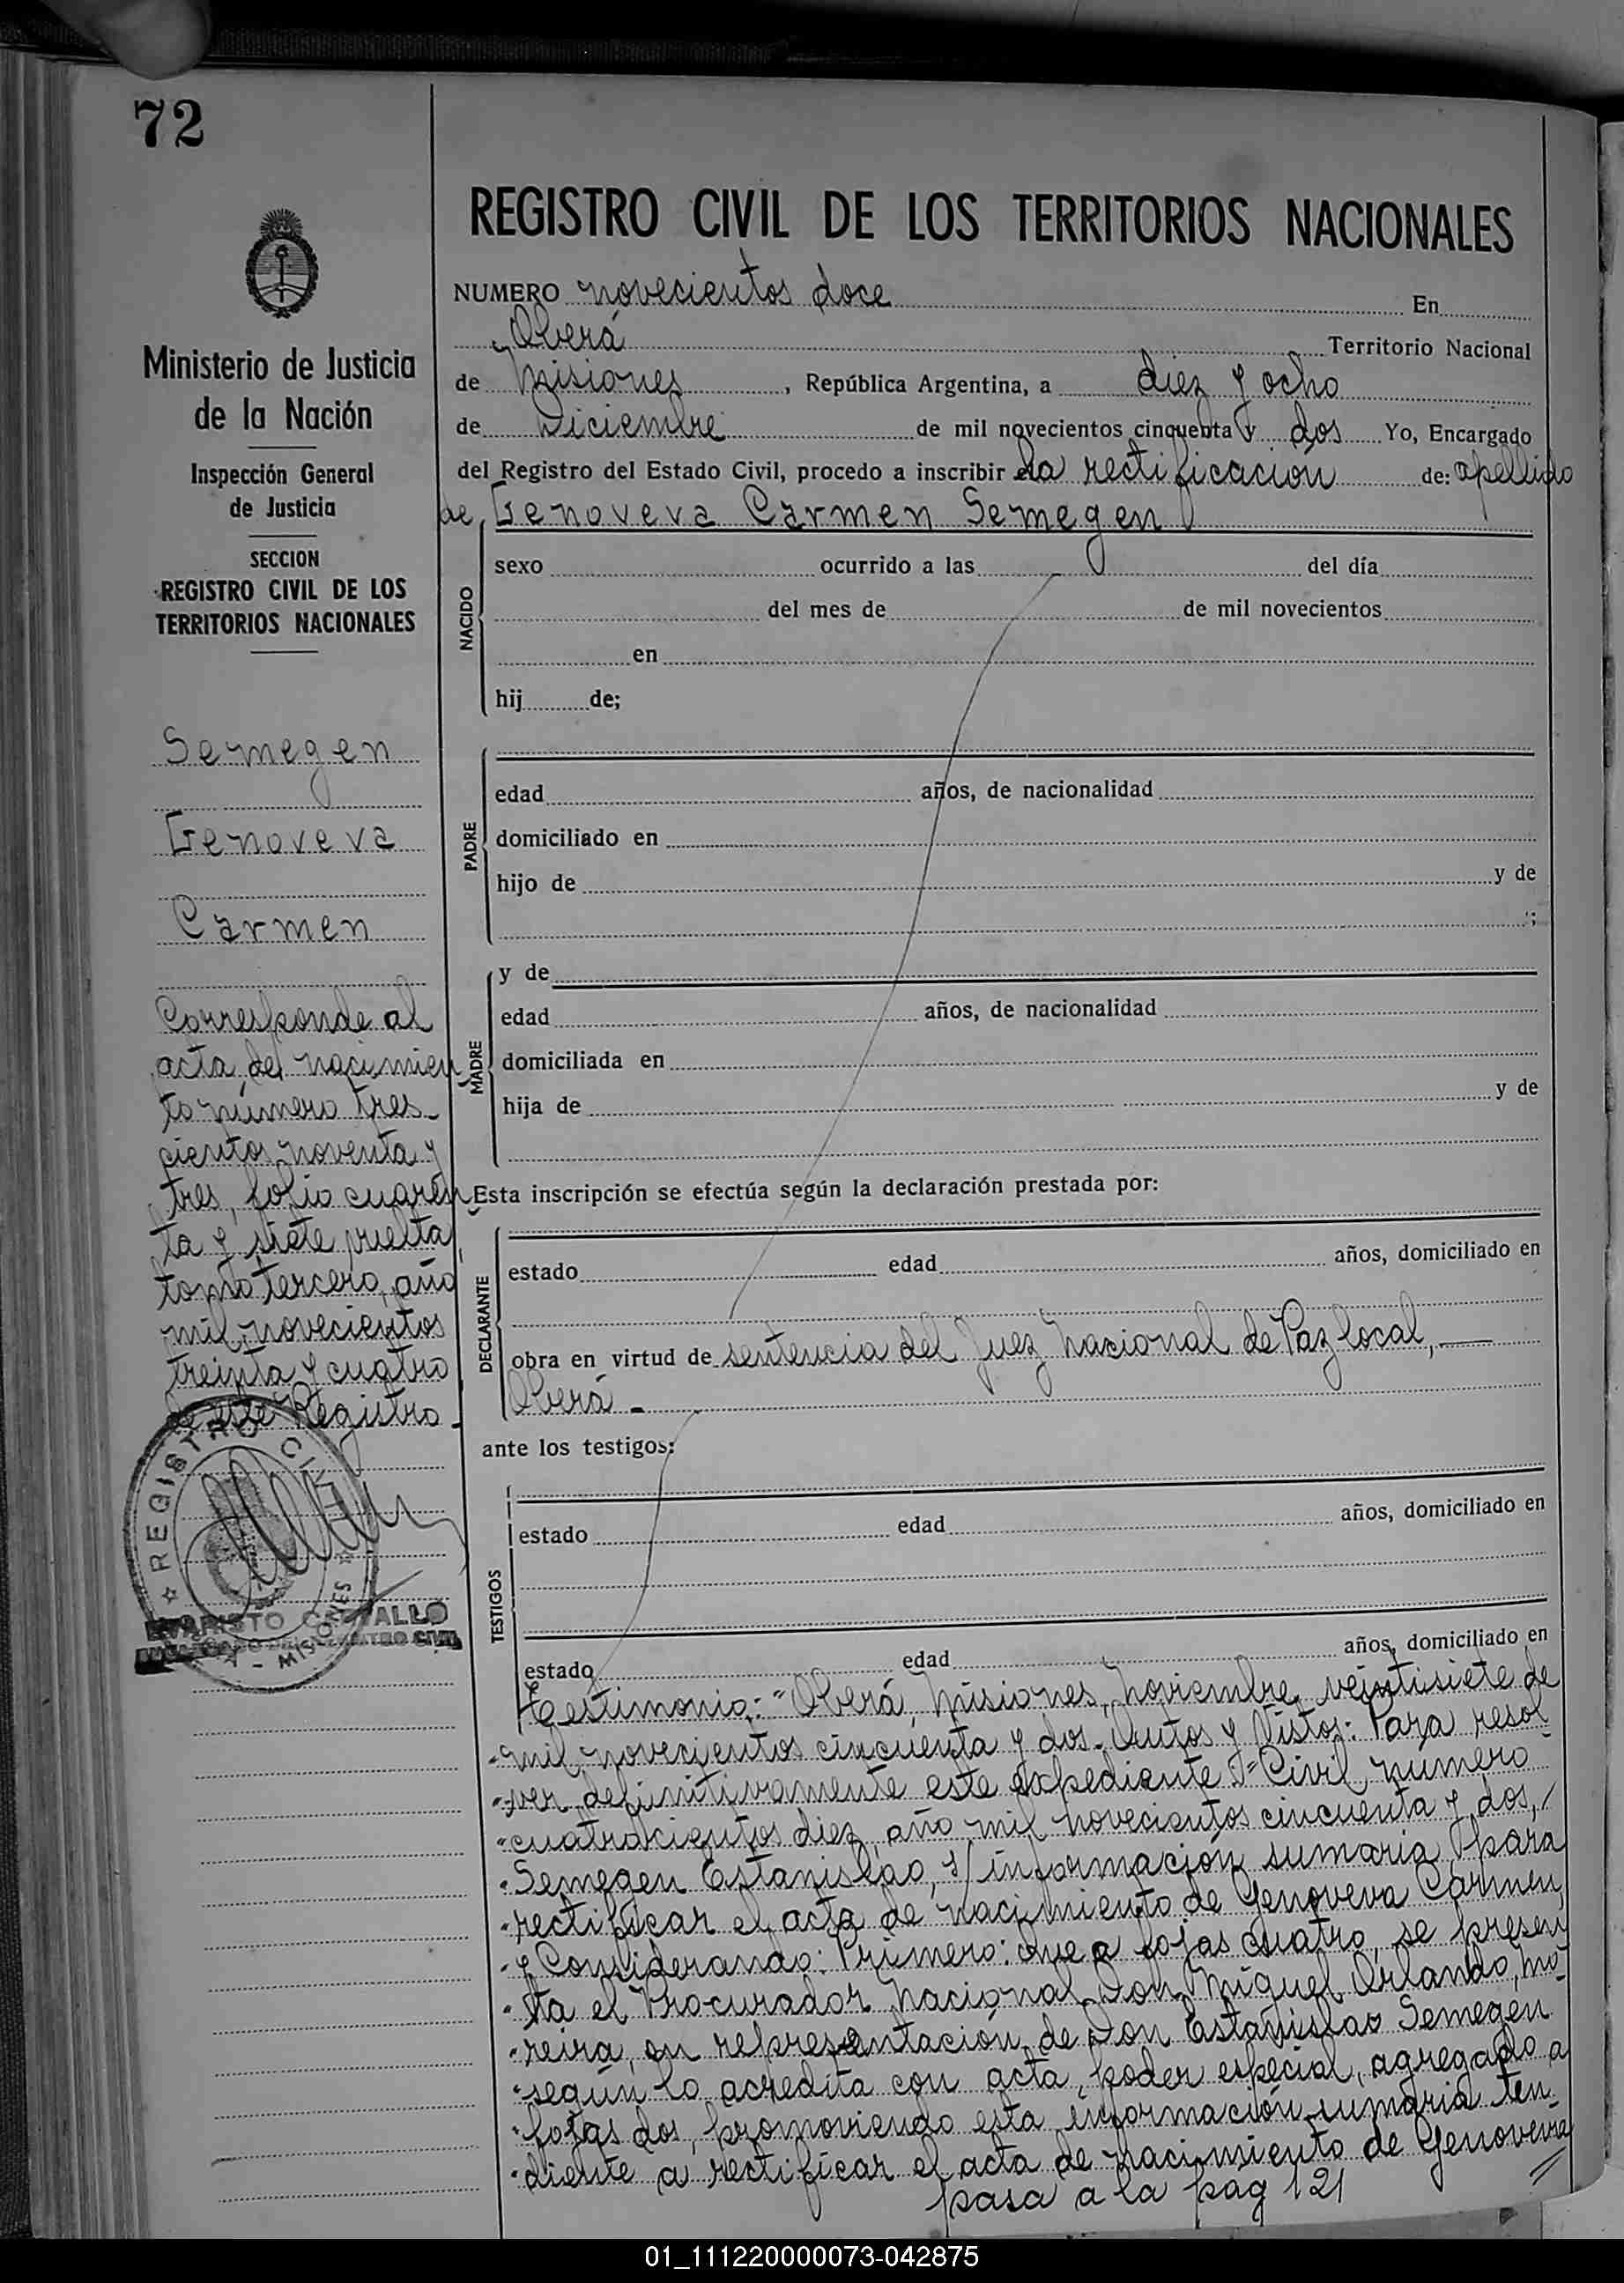 72
REGISTRO CIVIL DE LOS TERRITORIOS NACIONALES
Ministerio de Justicia
de la Nación
Inspección General
de Justicia
SECCION
REGISTRO CIVIL DE LOS
TERRITORIOS NACIONALES
Semegen
Genoveva
Carmen
Corresponde al
acta del nacimien
to número tres
cientos noventa y
tres, folio cuaren
ta y siete vuelta
tomo tercero, año
mil novecientos
treinta y cuatro
de este Registro.
REGISTRO CIVIL
MISIONES
EVARISTO
ENCARGADO DEL REGISTRO CIVIL
NUMERO novecientos doce En
Oberá Territorio Nacional
de Misiones, República Argentina, a diez y ocho
de Diciembre de mil novecientos cincuenta y dos Yo, Encargado
del Registro del Estado Civil, procedo a inscribir la rectificación de: apellido
de Genoveva Carmen Semegen
NACIDO
sexo ocurrido a las del día
del mes de de mil novecientos
en
hij de;
PADRE
edad años, de nacionalidad
domiciliado en
hijo de y de
;
MADRE
y de
edad años, de nacionalidad
domiciliada en
hija de y de
Esta inscripción se efectúa según la declaración prestada por:
DECLARANTE
estado edad años, domiciliado en
obra en virtud de sentencia del Juez Nacional de Paz local,
Oberá -
ante los testigos:
TESTIGOS
estado edad años, domiciliado en
estado edad años, domiciliado en
Testimonio: "Oberá, Misiones, Noviembre veintisiete de
"mil novecientos cincuenta y dos. Autos y Vistos: Para resol
"ver definitivamente este expediente Civil número
"cuatrocientos diez, año mil novecientos cincuenta y dos,
"Semegen Estanislao, s/ información sumaria para
"rectificar el acta de nacimiento de Genoveva Carmen,
"y Considerando: Primero: Que a fojas cuatro, se presen
"ta el Procurador Nacional Don Miguel Orlando, Mo
"reira, en representación de Don Estanislao Semegen
"según lo acredita con acta poder especial, agregado a
"fojas dos, promoviendo esta información sumaria ten
"diente a rectificar el acta de nacimiento de Genoveva
pasa a la pág 121
01_111220000073-042875